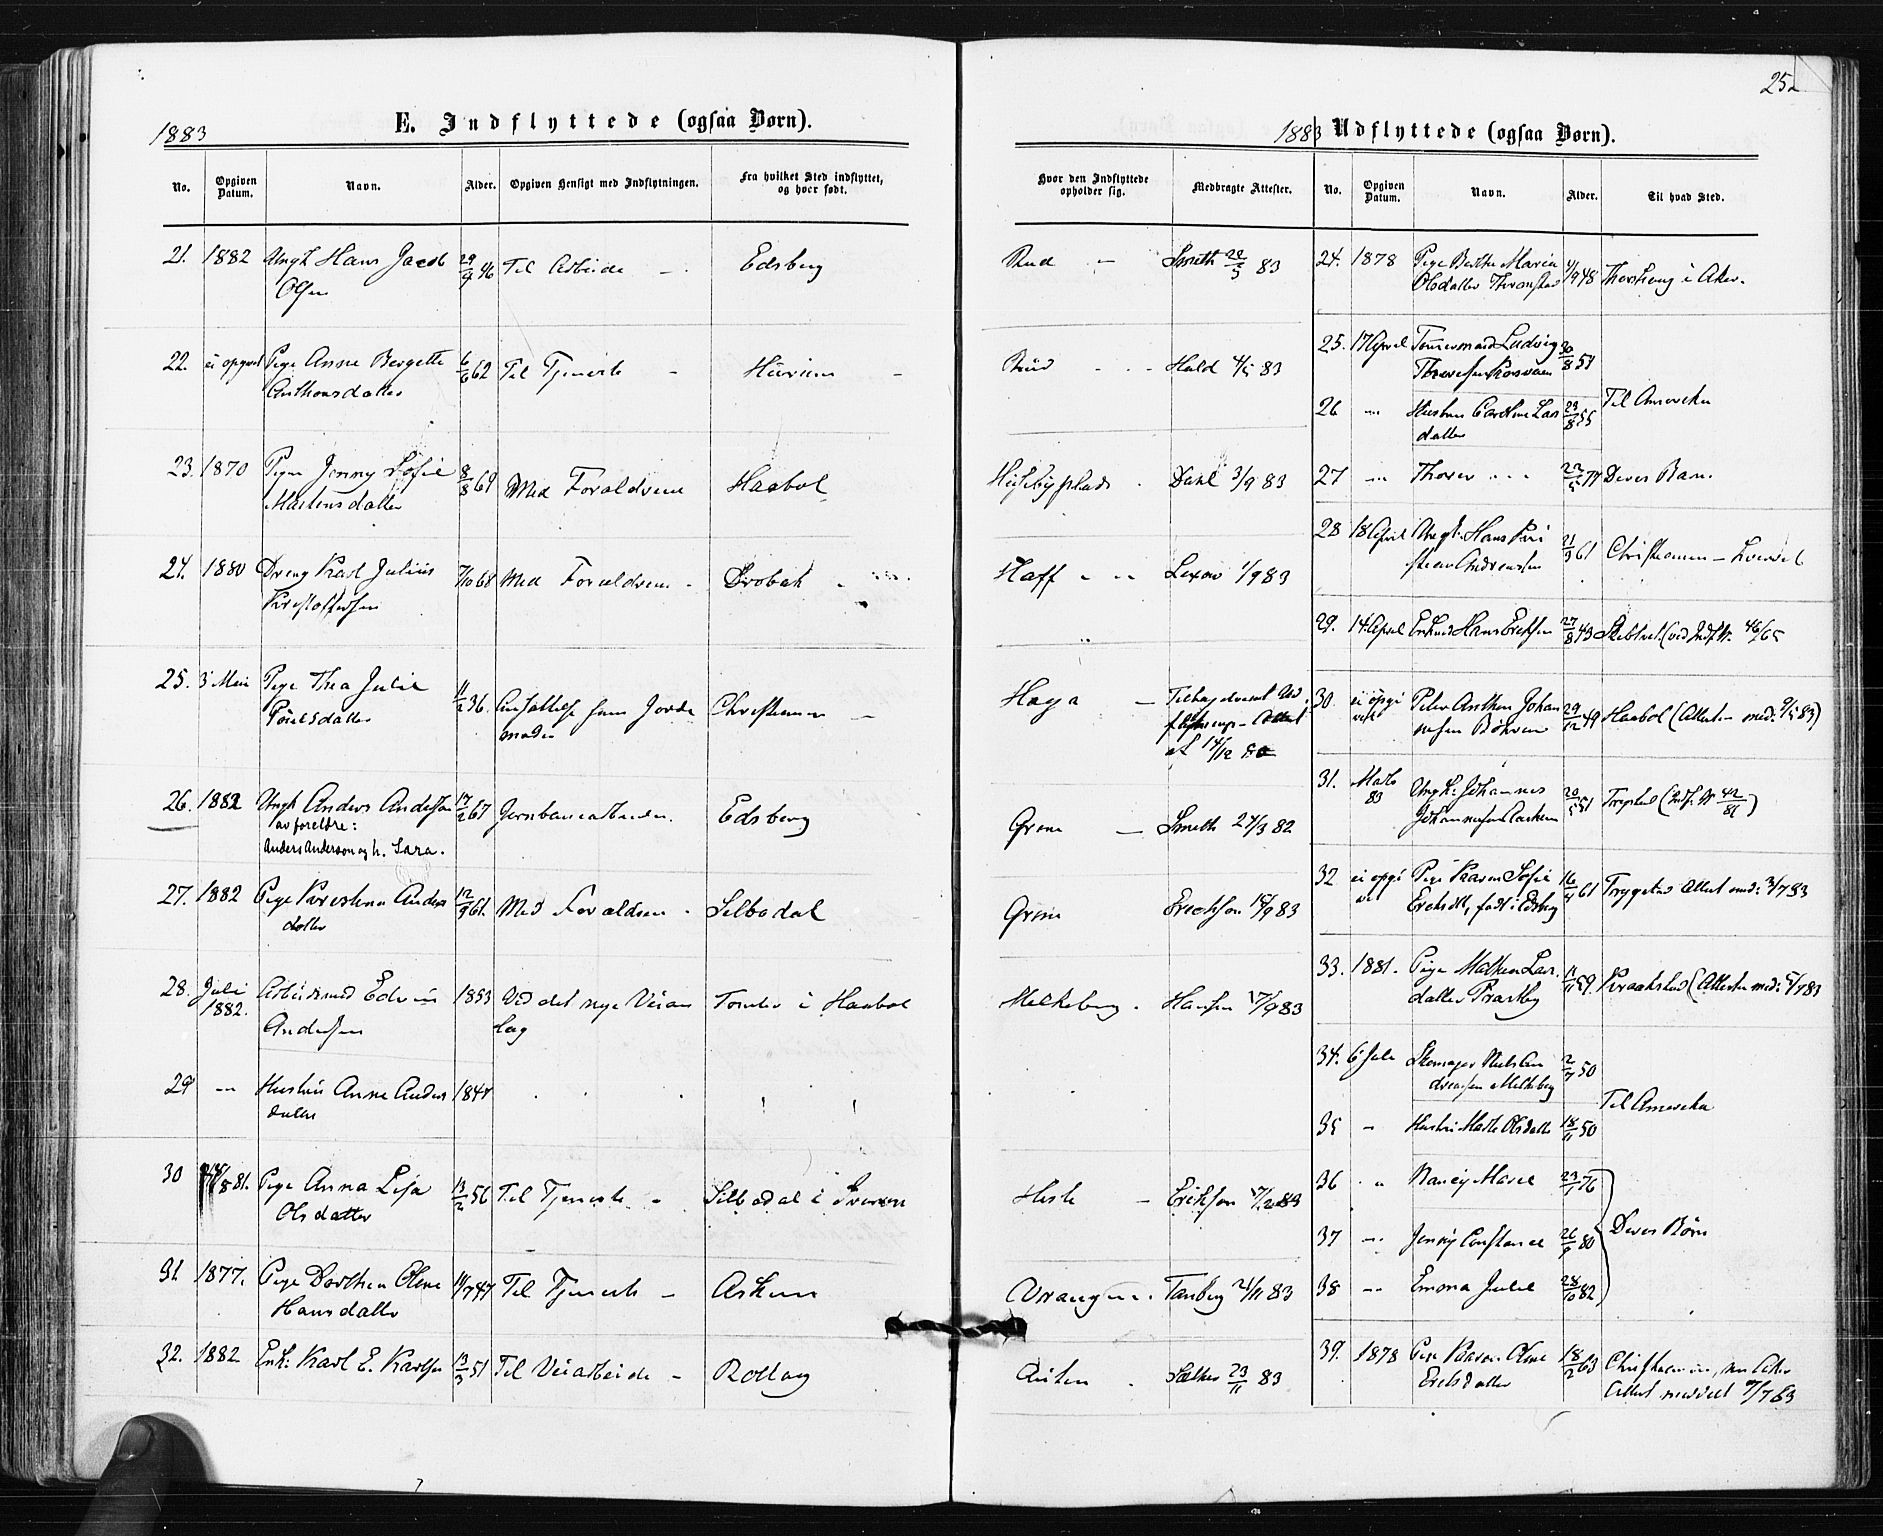 252
1883
E. Indflyttede (ogsaa Børn).
No. Opgiven Datum. Navn. Alder. Opgiven Hensigt med Indflytningen. Fra hvilket Sted indflyttet, og hvor født.
21. 1882 Ungk Hans Jacob 29/9 46 Til Arbeide - Edsberg
Olsen
22. ei opgivet Pige Anne Bergette 6/6 62 Til Tjeneste -
Anthonsdatter
23. 1870 Pige Jenny Sofie 8/8 69 Med Forældrene Haabøl
Martensdatter
24. 1880 Dreng Karl Julius 7/10 68 Med Forældrene - Drøbak
Kristoffersen
25. 3 Mai Pige Thea Julie 11/2 36. Ansættelse som Jorde Christiania -
Poulsdatter moder
26. 1882 Ungk Anders Andersen 17/2 67 Jernbanearbeider. Edsberg
av foreldre:
Anders Anderson og h. Sara.
27. 1882 Pige Kristina Anders 12/9 61. Med Forældren - Silbodal
datter
28. Juli Arbeidsmd Edvin 1853 Ved det nye Veian Tomter i Haabøl
1882. Andersen læg
29 - Hustru Anne Anders 1847
datter
30 /8 81. Pige Anna Lisa 13/2 56 Til Tjeneste - Silbodal i Sverige
Olsdatter
31. 1877. Pige Dorthea Oline 11/7 47 Til Tjeneste - Askim
Hansdatter
32. 1882 Enk: Karl E. Karlsen 13/3 51 Til Veiarbeide - Rollag
Hvor den Indflyttede opholder sig. Medbragte Attester.
Rud - Smith 22/5 83
Rud - Hald 4/5 83
Dahl 3/9 83
Haff - Lexow 1/9 83
Haga - Tilbagelevert Ud
flytnings-Attest
af 14/12 80
Grone - Smith 27/3 82
Grone Erickson 15/9 83
Melkeberg. Hansen 17/9 83
Erikson 17/12 83
Tanberg 21/11 83
23/11 83
1883 Udflyttede (ogsaa Børn).
No. Opgiven Datum. Navn. Alder. Til hvad Sted.
24. 1878 Pige Berthe Maria 4/9 48 i Aker.
Olsdatter
25. 17 April Tømmermand Ludvig 30/8 54
26 - Hustru Caroline Lars 23/8 55 Til Amerika
datter
27 - Thorer - 22/5 77 Deres Barn.
28 18 April Ungk: Hans Kri 21/9 61 Christiania -
stian Andreassen
29. 14 April Enkmd Hans Eriksen 27/8 43 (ved Indf. Nr. 46/65
30. ei opgi Peter Anthon Johan 29/12 49 Haabøl (Attest - med: 9/5 83)
vet nesen
31. Marts Ungk: Johannes 20/5 51 (Indf. Nr 42/81)
83 Johannesen
32 ei opgi Pige Karen Sofie 16/4 61 Trygstad Attest med: 3/7 83
vet Eriksdt, født i Edsberg
33. 1881. Pige Mathea Lars 11/11 59. Kraakstad (Attest med: 5/7 83
datter Præstby
34. 6 Juli Skomager Niels An 2/7 50
dreasen Melkeberg Til Amerika
35 - Hustru Marthe Olsdatter 18/11 50
36 " Nancy Marie 23/1 76
37 - Jenny Constance 26/9 80 Deres Børn
38 - Emma Julie 28/10 82
39. 1878 Pige Karen Oline 18/2 63 Christiania,
Eriksdatter Attest meddelt 7/7 83